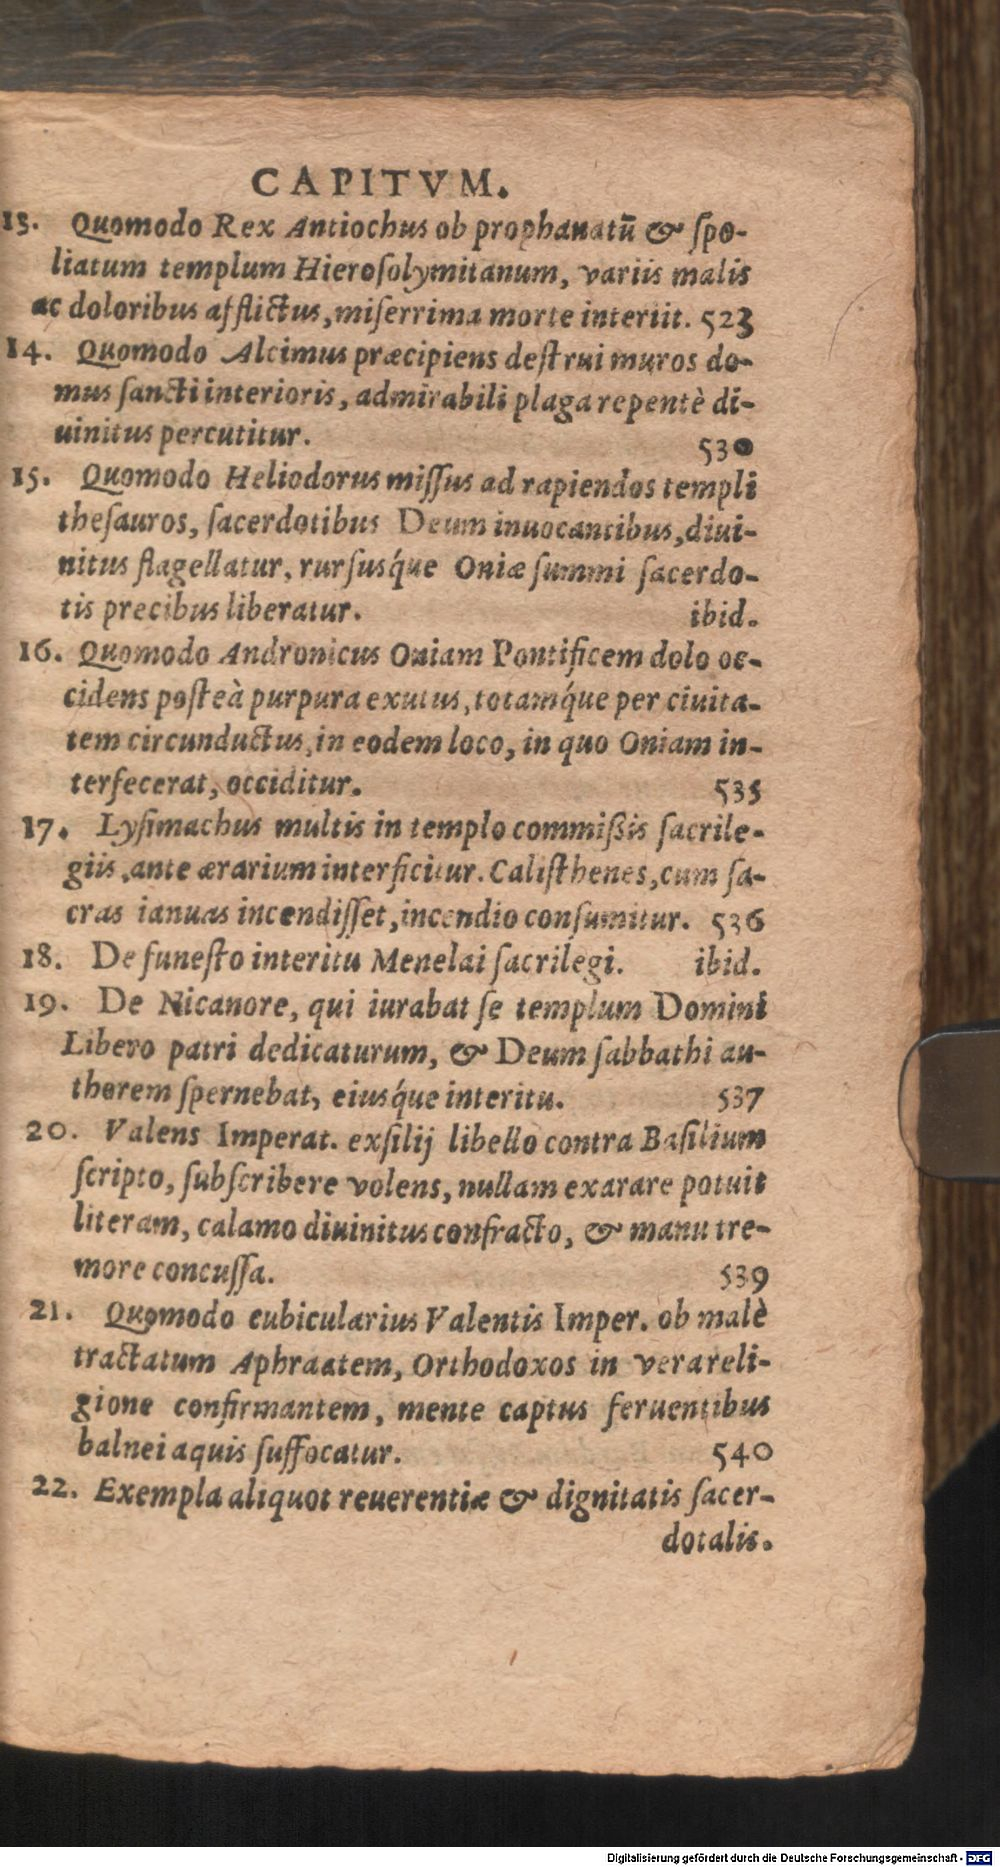 CAPITVM.
13. Quomodo Rex Antiochus ob prophanatū & ſpo-
liatum templum Hieroſolymitanum, variis malis
ac doloribus afflictus, miſerrima morte interiit. 523
14. Quomodo Alcimus præcipiens deſtrui muros do-
mus ſancti interioris, admirabili plaga repentè di-
uinitus percutitur. 530
15. Quomodo Heliodorus miſſus ad rapiendos templi
theſauros, ſacerdotibus Deum inuocantibus, diui-
nitus flagellatur, rurſusq́ue Oniæ ſummi ſacerdo-
tis precibus liberatur. ibid.
16. Quomodo Andronicus Oniam Pontificem dolo oc-
cidens poſteà purpura exutus, totamq́ue per ciuita-
tem circunductus, in eodem loco, in quo Oniam in-
terfecerat, occiditur. 535
17. Lyſimachus multis in templo commißis ſacrile-
giis, ante ærarium interficitur. Caliſthenes, cum ſa-
cras ianuas incendiſſet, incendio conſumitur. 536
18. De funeſto interitu Menelai ſacrilegi. ibid.
19. De Nicanore, qui iurabat ſe templum Domini
Libero patri dedicaturum, & Deum ſabbathi au-
thorem ſpernebat, eiusq́ue interitu. 537
20. Valens Imperat. exſilij libello contra Baſilium
ſcripto, ſubſcribere volens, nullam exarare potuit
literam, calamo diuinitus confracto, & manu tre-
more concuſſa. 539
21. Quomodo cubicularius Valentis Imper. ob malè
tractatum Aphraatem, Orthodoxos in vera reli-
gione confirmantem, mente captus feruentibus
balnei aquis ſuffocatur. 540
22. Exempla aliquot reuerentiæ & dignitatis ſacer-
dotalis.
Digitalisierung gefördert durch die Deutsche Forschungsgemeinschaft - DFG